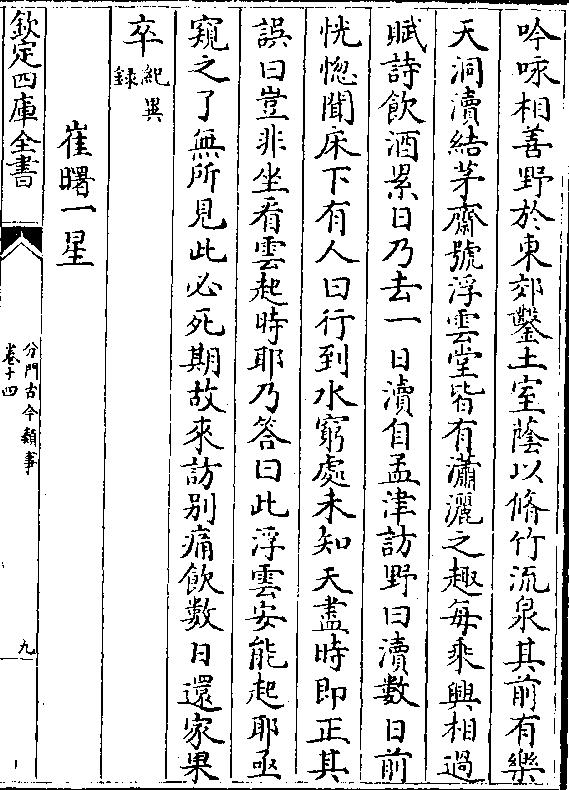 吟咏相善野於東郊鑿土室蔭以脩竹流泉其前有樂
天洞瀆結茅齋號浮雲堂皆有瀟灑之趣每乘興相過
賦詩飲酒累日乃去一日瀆自孟津訪野曰瀆數日前
恍惚聞床下有人曰行到水窮處未知天盡時即正其
誤曰豈非坐看雲起時耶乃答曰此浮雲安能起耶亟
窺之了無所見此必死期故來訪别痛飲數日還家果
卒紀異錄
崔曙一星
欽定四庫全書
分門古今類事
卷十四
九